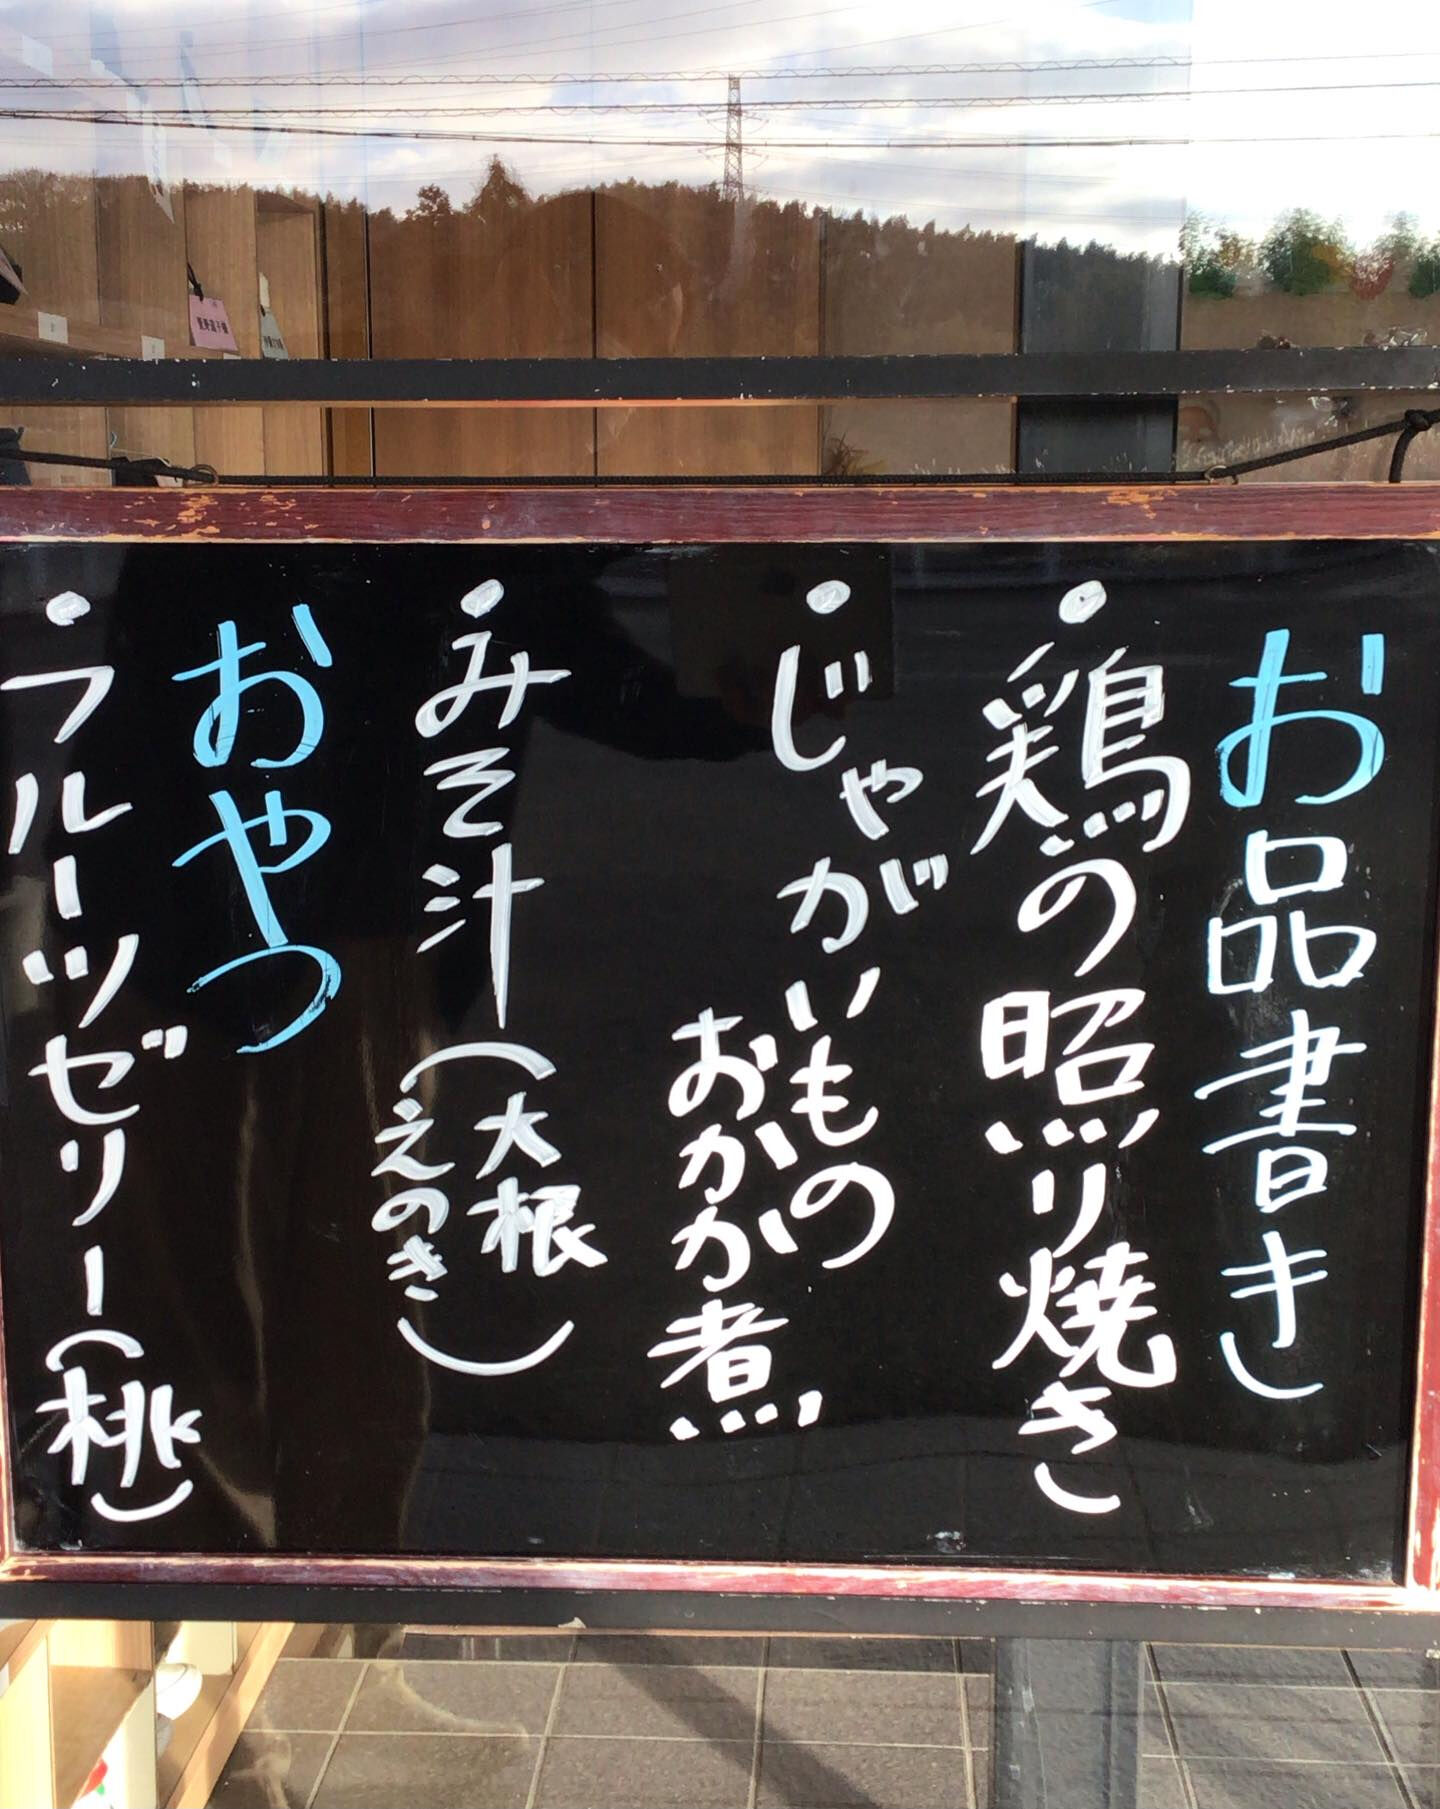 お品書き
・鶏の照り焼き
・じゃがいもの
おかか煮
・みそ汁(大根
えのき)
おやつ
・フルーツゼリー(桃)